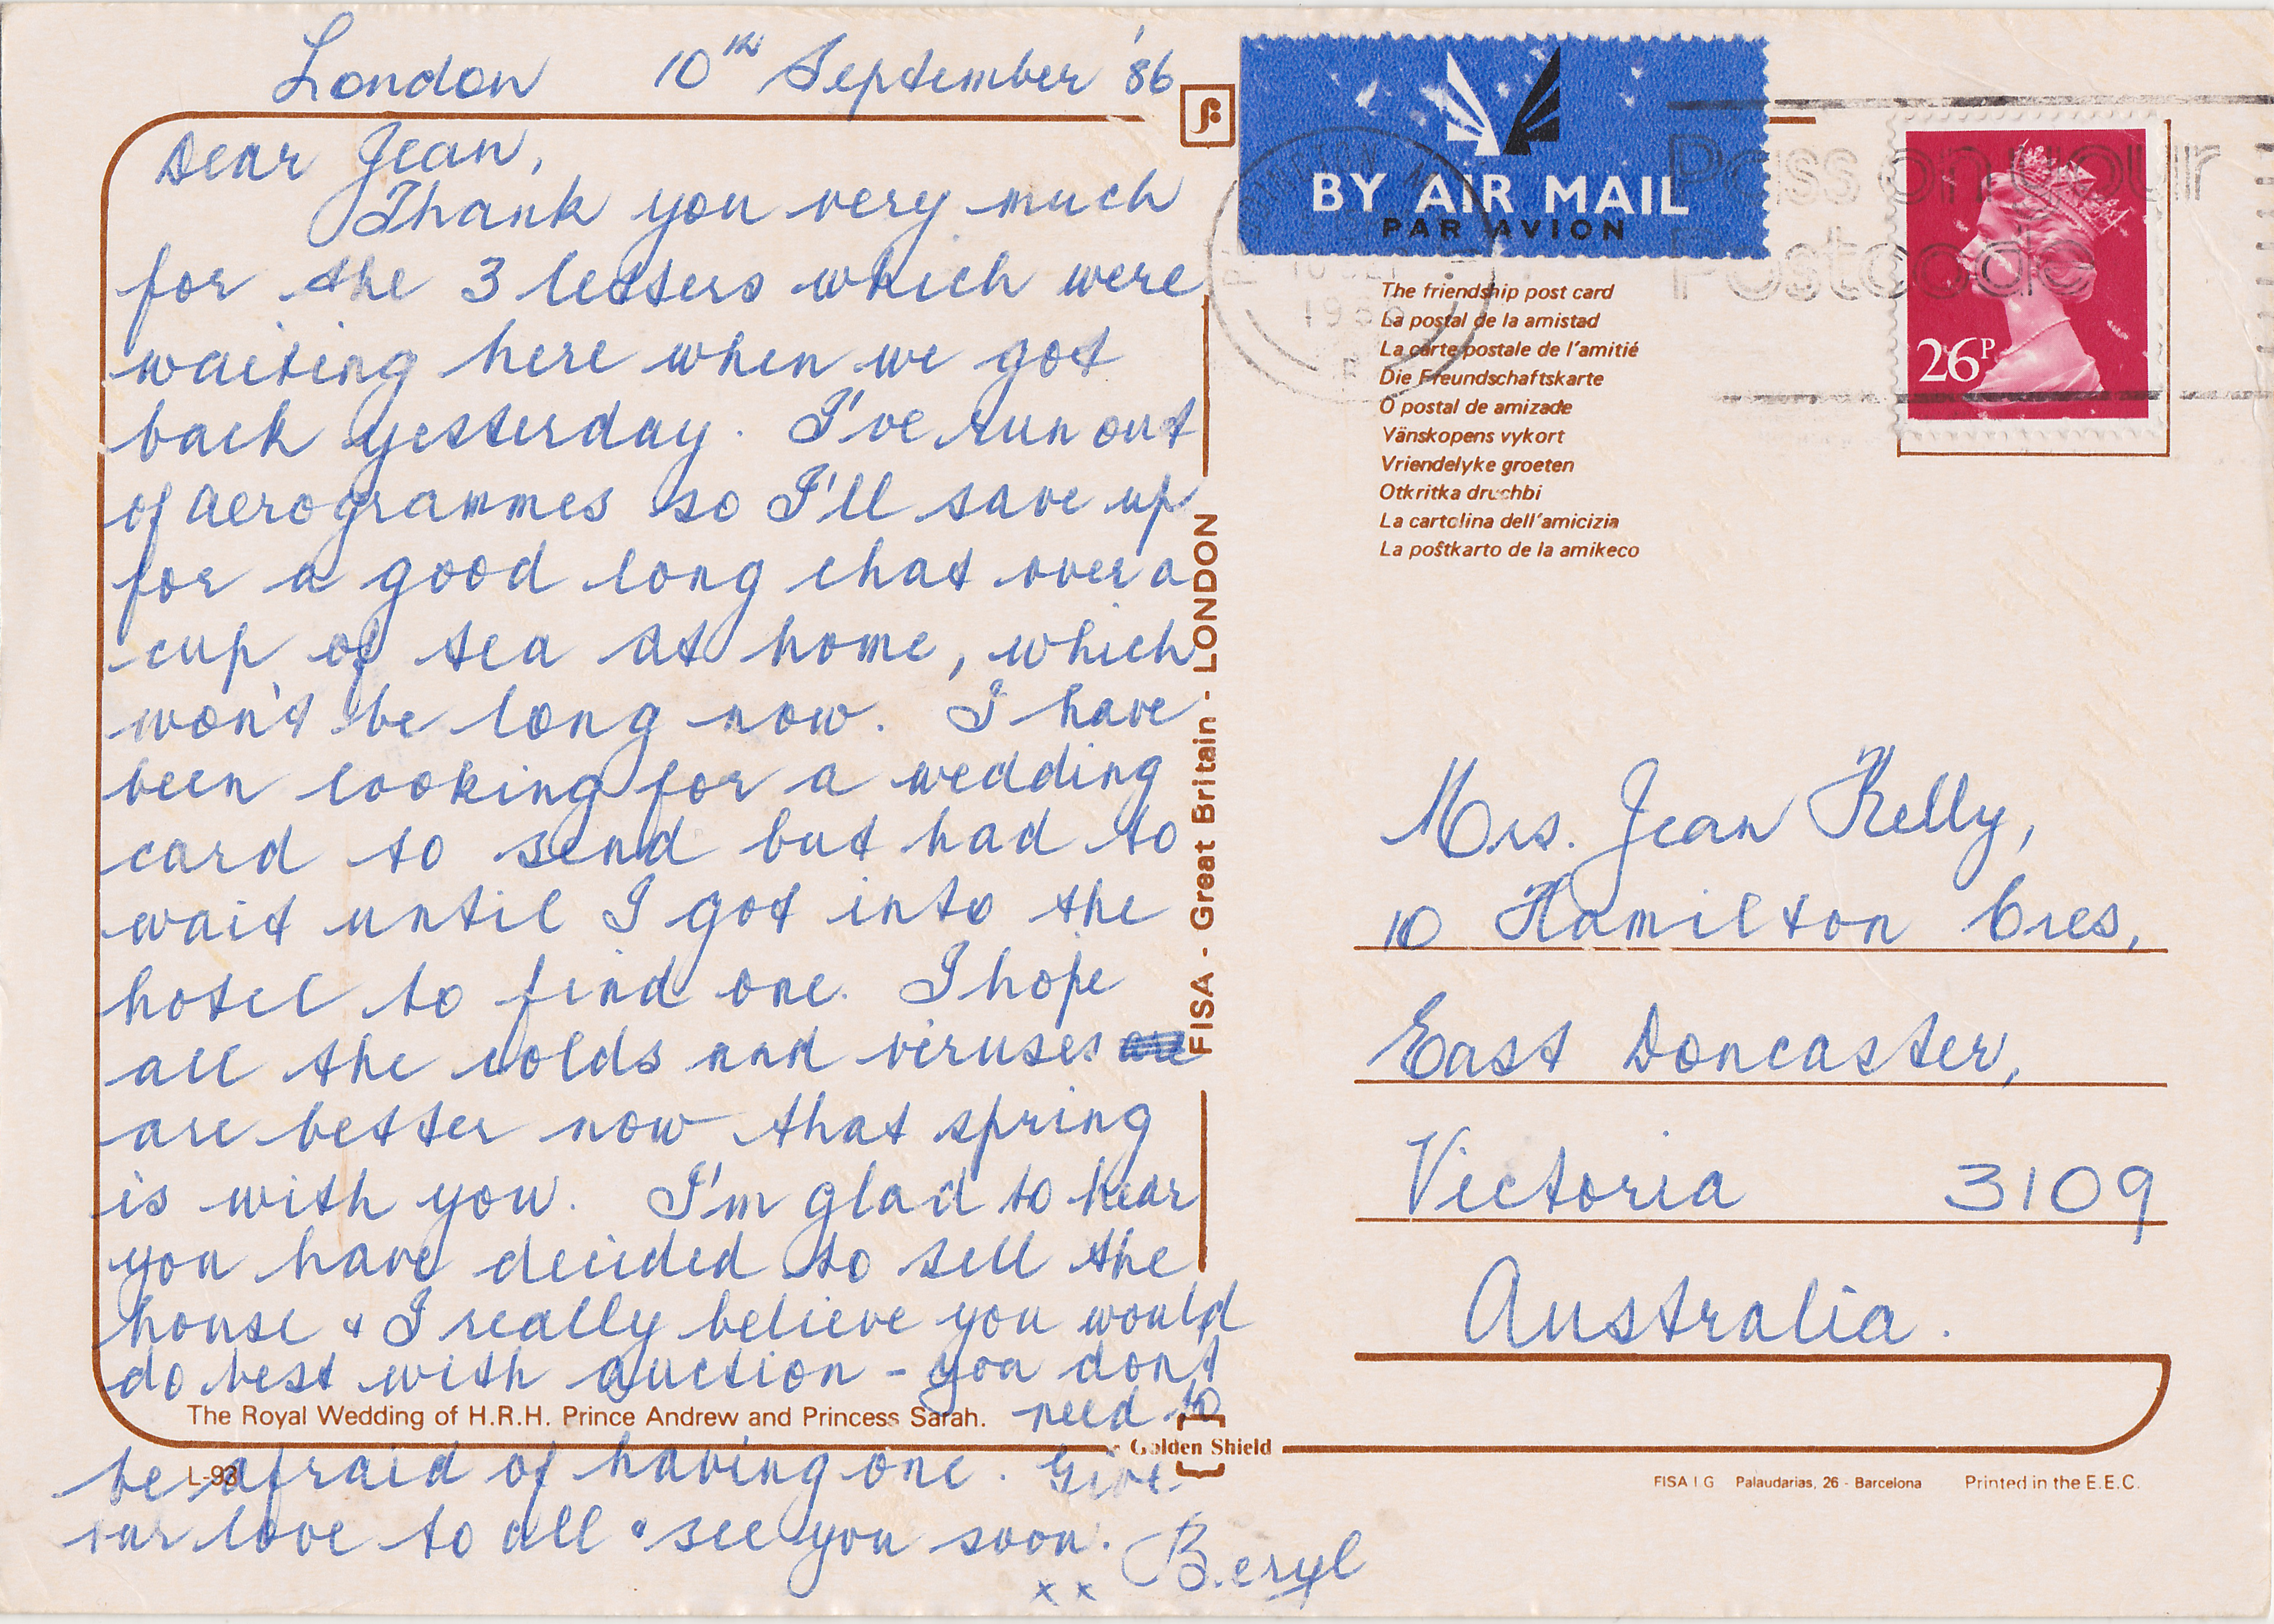 London 10th September '86
Dear Jean,
Thank you very much
for the 3 letters which were
waiting here when we got
back yesterday. I've run out
of aerogrammes so I'll save up
for a good long chat over a
cup of tea at home, which
won't be long now. I have
been looking for a wedding
card to send but had to
wait until I got into the
hotel to find one. I hope
all the colds and viruses
are better now that spring
is with you. I'm glad to hear
you have decided to sell the
house & I really believe you would
do best with auction - you don't
need to
be afraid of having one. Give
our love to all & see you soon.
x x Beryl
The Royal Wedding of H.R.H. Prince Andrew and Princess Sarah.
L-93
Golden Shield
FISA - Great Britain - LONDON
BY AIR MAIL
PAR AVION
Pass on your
Postcode
1986
26P
The friendship post card
La postal de la amistad
La carte postale de l'amitié
Die Freundschaftskarte
O postal de amizade
Vänskopens vykort
Vriendelyke groeten
Otkritka druchbi
La cartolina dell'amicizia
La poŝtkarto de la amikeco
Mrs. Jean Kelly,
10 Hamilton Cres,
East Doncaster,
Victoria 3109
Australia.
FISA I.G Palaudarias, 26 - Barcelona Printed in the E.E.C.